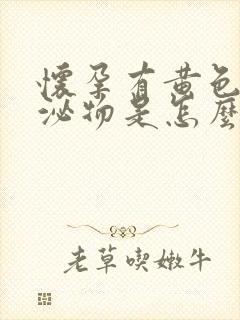 懷孕有黃色
泌物是怎麼
老草喫嫩牛